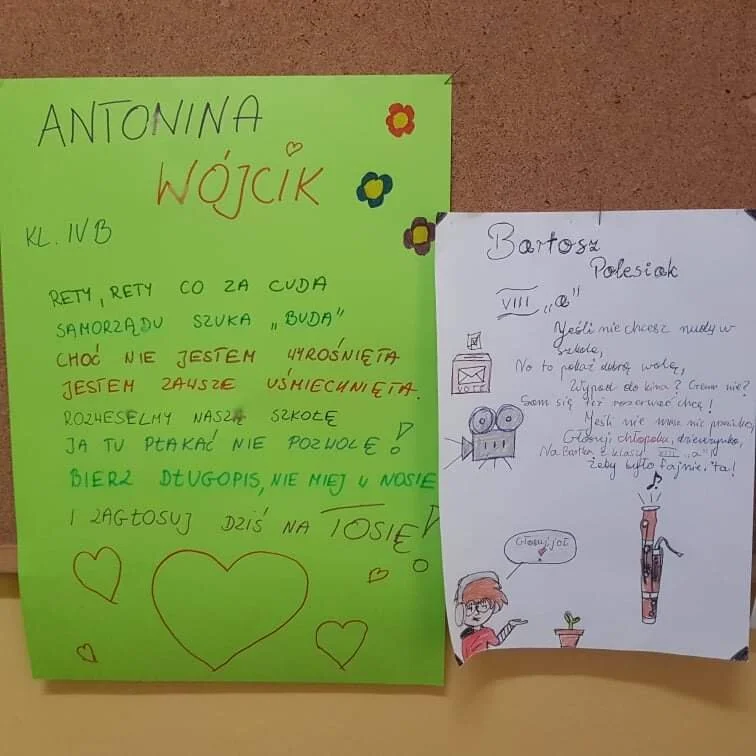 ANTONINA
WÓJCIK
KL. IV B
RETY, RETY CO ZA CUDA
SAMORZĄDU SZUKA „BUDA”
CHOĆ NIE JESTEM WYROŚNIĘTA
JESTEM ZAWSZE UŚMIECHNIĘTA.
ROZWESELMY NASZĄ SZKOŁĘ
JA TU PŁAKAĆ NIE POZWOLĘ!
BIERZ DŁUGOPIS, NIE MIEJ W NOSIE
I ZAGŁOSUJ DZIŚ NA TOSIĘ!
Bartosz
Polesiak
VIII „a”
Jeśli nie chcesz nudy w
szkole,
No to pokaż dobrą wolę,
Wypad do kina? Czemu nie?
Sam się też rozerwać chcę!
Jeśli nie masz nic
Głosuj chłopaku, dziewczynko,
Na Bartka z klasy VIII „a”
Żeby było fajnie. ta!
VOTE
Głosuj.już